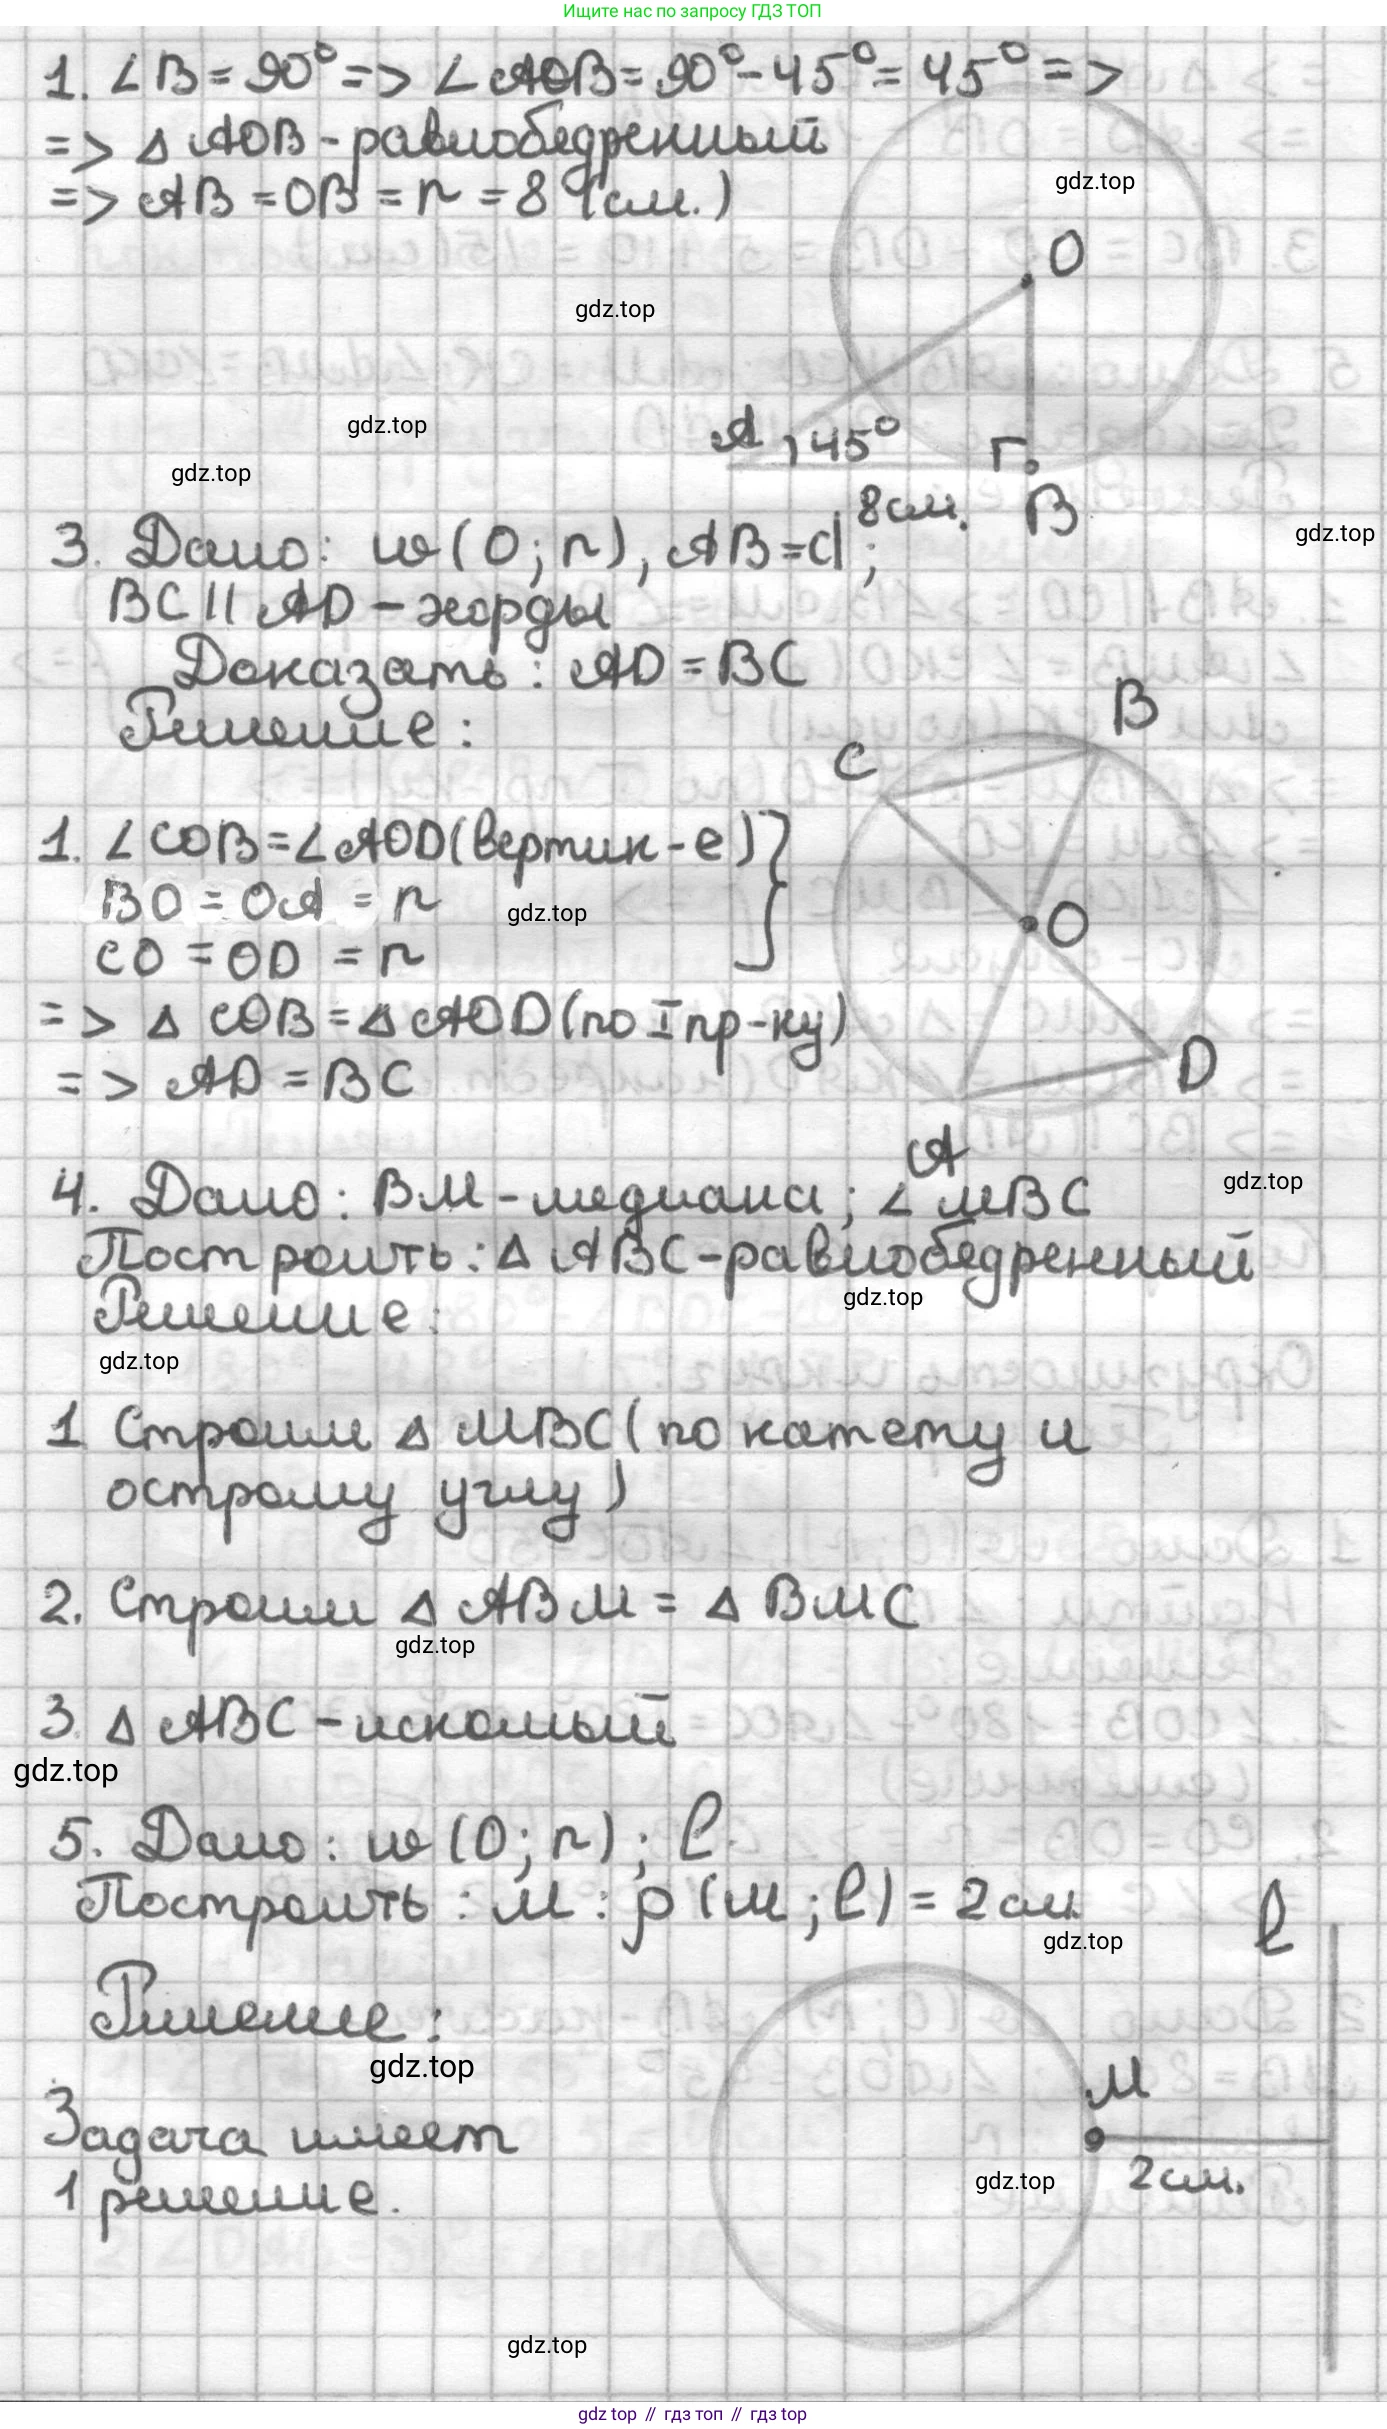 Ищите нас по запросу ГДЗ ТОП
1. ∠B = 90° => ∠AOB = 90° - 45° = 45° =>
=> △ AOB - равнобедренный
=> AB = OB = r = 8 (см.)
gdz.top
O
gdz.top
A 45°
gdz.top
gdz.top
8 см. B
gdz.top
3. Дано: w (O; r), AB = d;
BC || AD - хорды
Доказать: AD = BC
Решение:
B
C
1. ∠COB = ∠AOD (вертик-е)
BO = OA = r
gdz.top
O
CO = OD = r
=> △ COB = △ AOD (по I пр-ку)
=> AD = BC
D
A
gdz.top
4. Дано: BM - медиана; ∠ MBC
Построить: △ ABC - равнобедренный
gdz.top
Решение:
gdz.top
1 Строим △ MBC (по катету и
острому углу)
2. Строим △ ABM = △ BMC
gdz.top
3. △ ABC - искомый
gdz.top
5. Дано: w (O; r); l
Построить: M: ρ (M; l) = 2 см.
gdz.top
l
Решение:
gdz.top
M
Задача имеет
1 решение.
gdz.top
2 см.
gdz.top
gdz top // гдз топ // гдз top